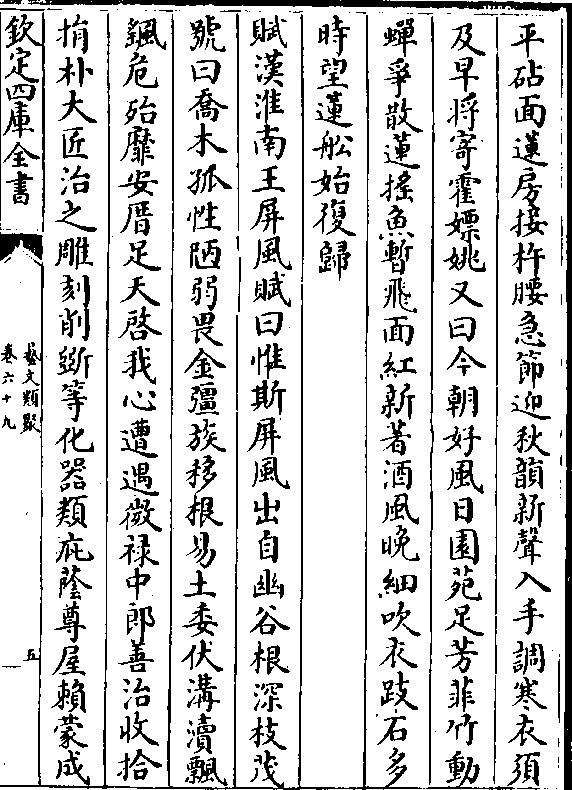 平砧面蓮房接杵腰急節迎秋韻新聲入手調寒衣須
及早將寄霍嫖姚又曰今朝好風日園苑足芳菲竹動
蟬爭散蓮搖魚暫飛面紅新著酒風晚細吹衣跂石多
時望蓮船始復歸
賦漢淮南王屏風賦曰惟斯屏風出自幽谷根深枝茂
號曰喬木孤性陋弱畏金彊族移根易土委伏溝瀆飄
颻危殆靡安厝足天啓我心遭遇徵祿中郎善治收拾
捐朴大匠治之雕刻削斲等化器類庇蔭尊屋賴蒙成
欽定四庫全書
藝文類聚
卷六十九
五